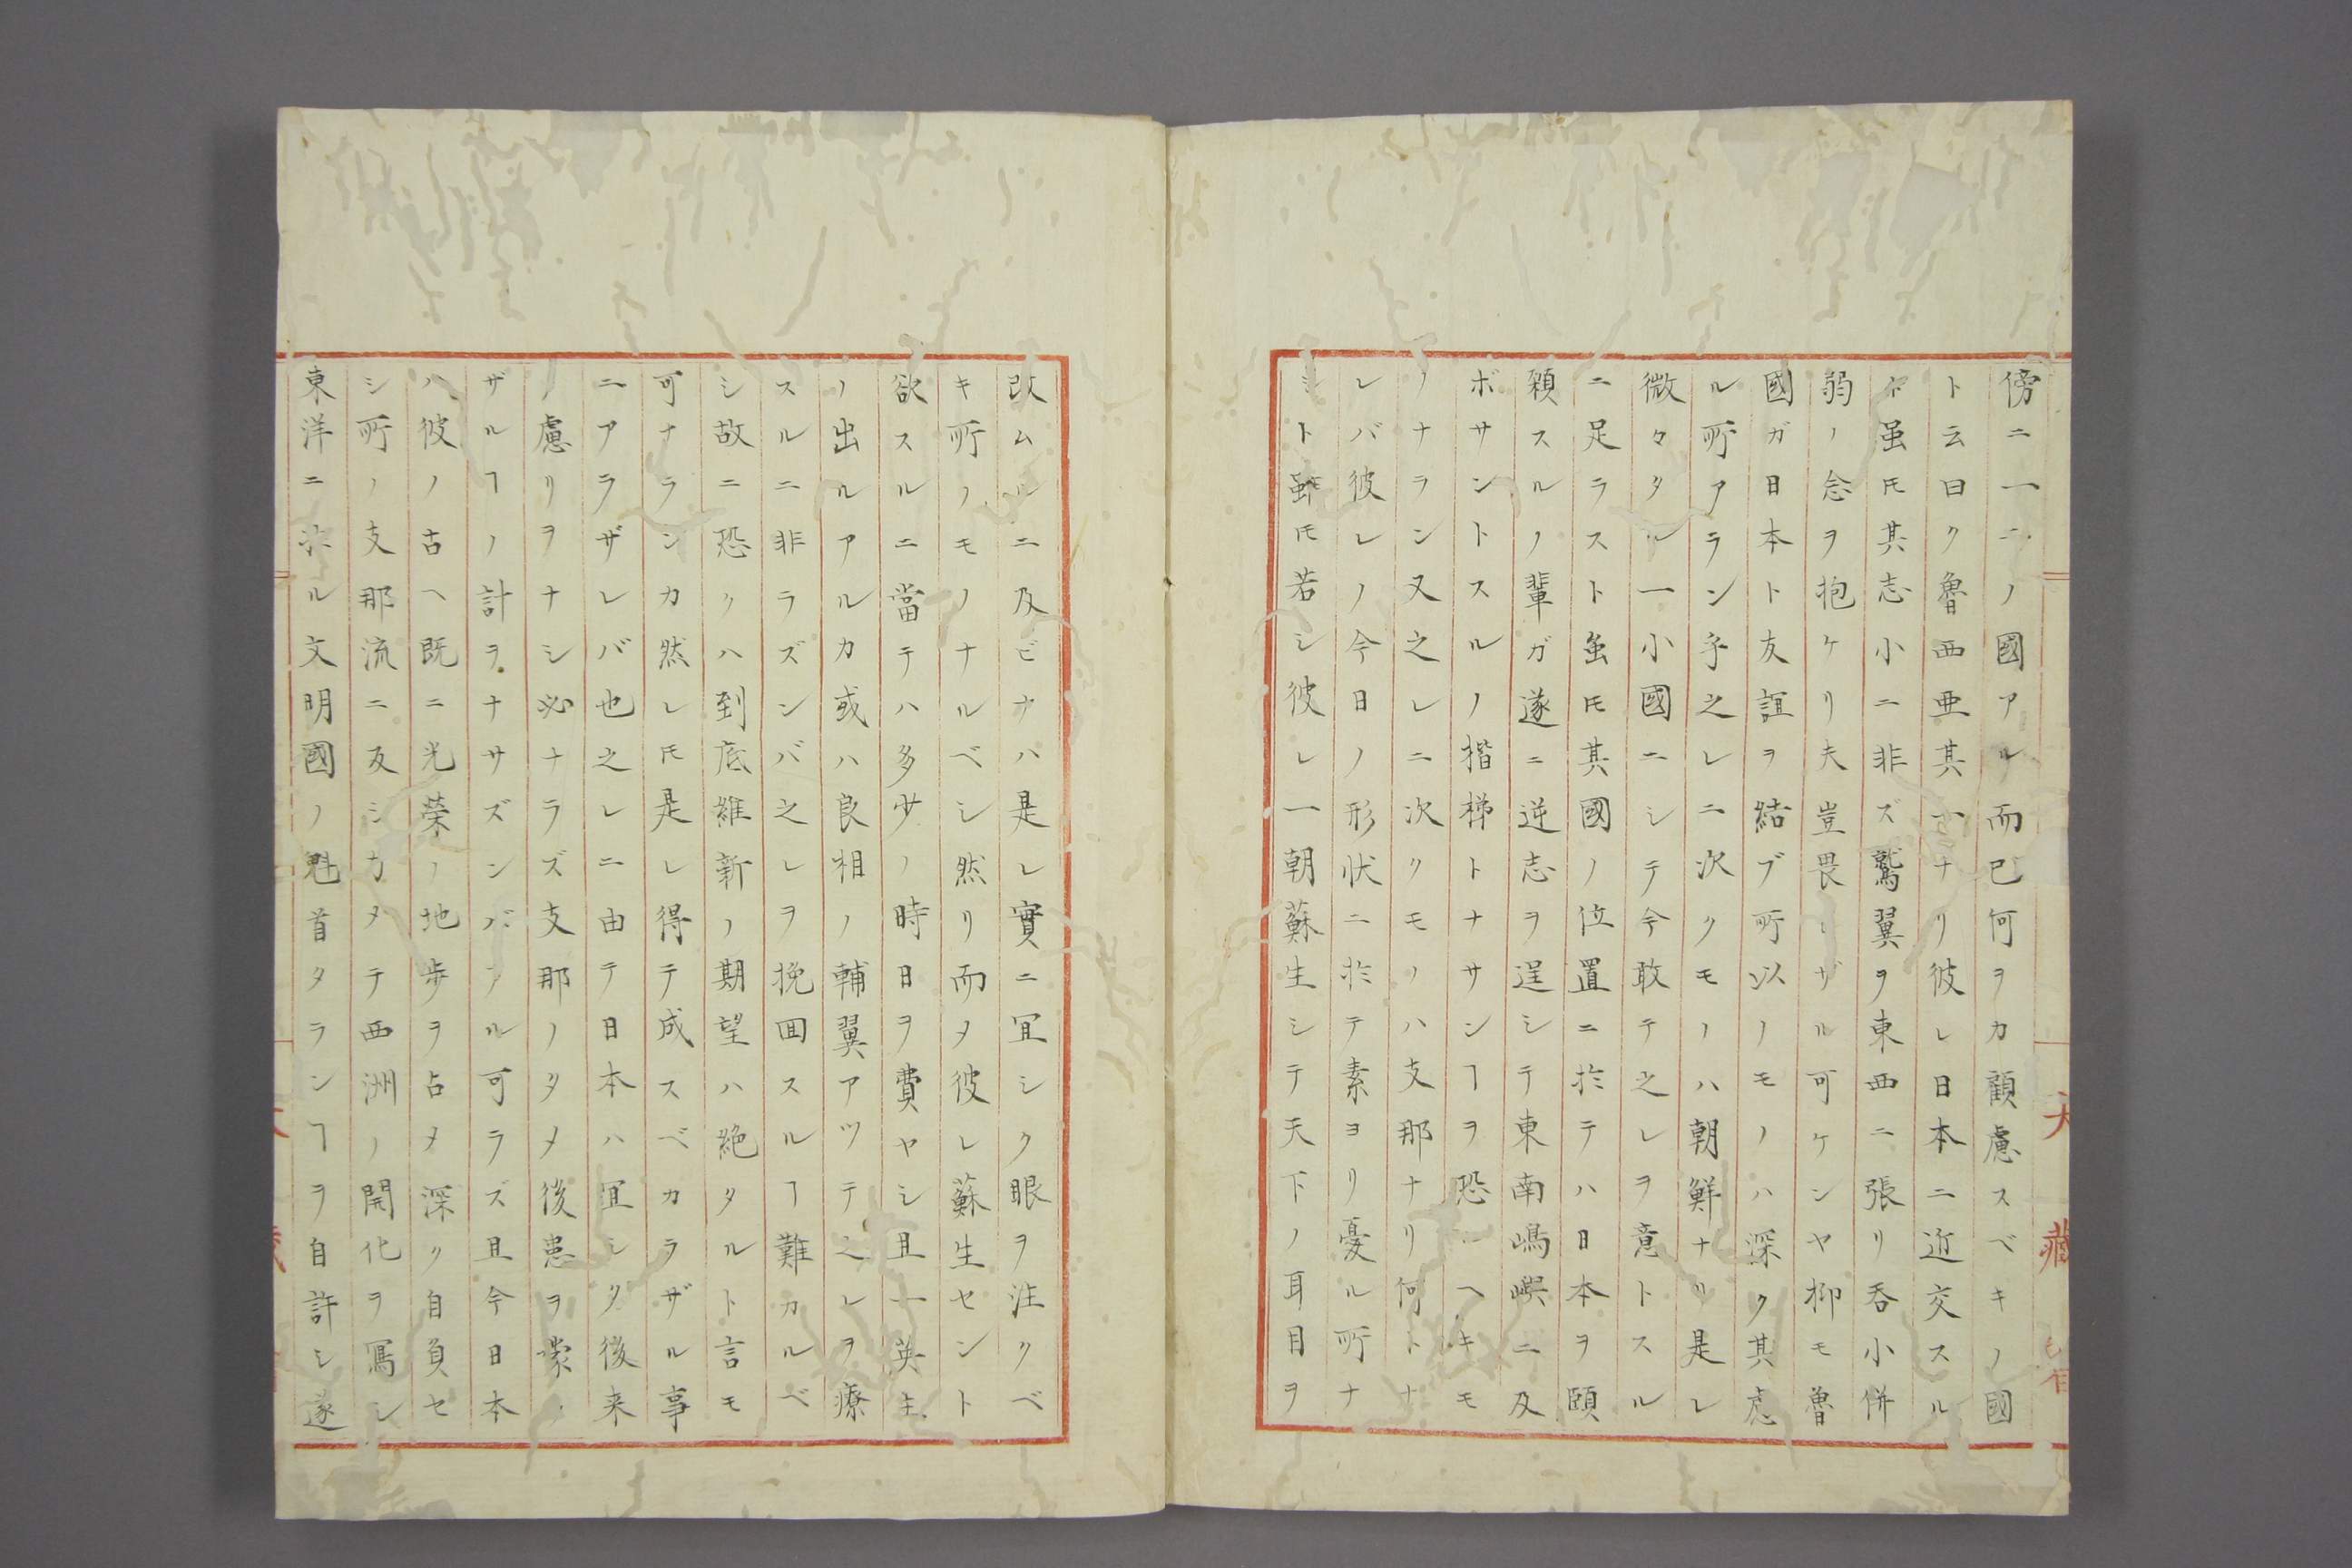 傍ニ一二ノ國アル而已何ヲカ顧慮スベキノ國
ト云曰ク魯西亜其一ナリ彼レ日本ニ近交スル
ト虽𪜈其志小ニ非ズ鷲翼ヲ東西ニ張リ呑小併
弱ノ念ヲ抱ケリ夫豈畏レザル可ケンヤ抑モ魯
國ガ日本ト友誼ヲ結ブ所以ノモノハ深ク其慮
ル所アラン乎之レニ次クモノハ朝鮮ナリ是レ
微々タル一小國ニシテ今敢テ之レヲ意トスル
ニ足ラスト虽𪜈其國ノ位置ニ於テハ日本ヲ頤
顙スルノ輩ガ遂ニ逆志ヲ逞シテ東南嶋嶼ニ及
ボサントスルノ揩梯トナサンヿヲ恐ルヘキモ
ノナラン又之レニ次クモノハ支那ナリ何トナ
レバ彼レノ今日ノ形状ニ於テ素ヨリ憂ル所ナ
シト雖𪜈若シ彼レ一朝蘇生シテ天下ノ耳目ヲ
改ムルニ及ビナハ是レ實ニ冝シク眼ヲ注クベ
キ所ノモノナルベシ然リ而メ彼レ蘇生セント
欲スルニ當テハ多少ノ時日ヲ費ヤシ且一英主
ノ出ルアルカ或ハ良相ノ輔翼アツテ之レヲ療
スルニ非ラズンバ之レヲ挽回スルヿ難カルベ
シ故ニ恐クハ到底維新ノ期望ハ絶タルト言モ
可ナランカ然レ𪜈是レ得テ成スベカラザル事
ニアラザレバ也之レニ由テ日本ハ冝シク後来
ノ慮リヲナシ必ナラズ支那ノタメ後患ヲ蒙ラ
ザルヿノ計ヲナサズンバアル可ラズ且今日本
ハ彼ノ古ヘ既ニ光榮ノ地歩ヲ占メ深ク自負セ
シ所ノ支那流ニ反シカメテ西洲ノ開化ヲ寫シ
東洋ニ於ル文明國ノ魁首タランヿヲ自許シ遂